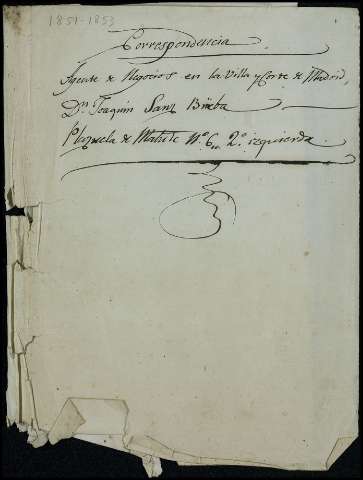 1851-1853
Correspondencia
Agente de Negocios en la Villa y Corte de Madrid,
Dn. Joaquin Sanz
Plazuela de Matute Nº. 6,, 2º. izquierda.